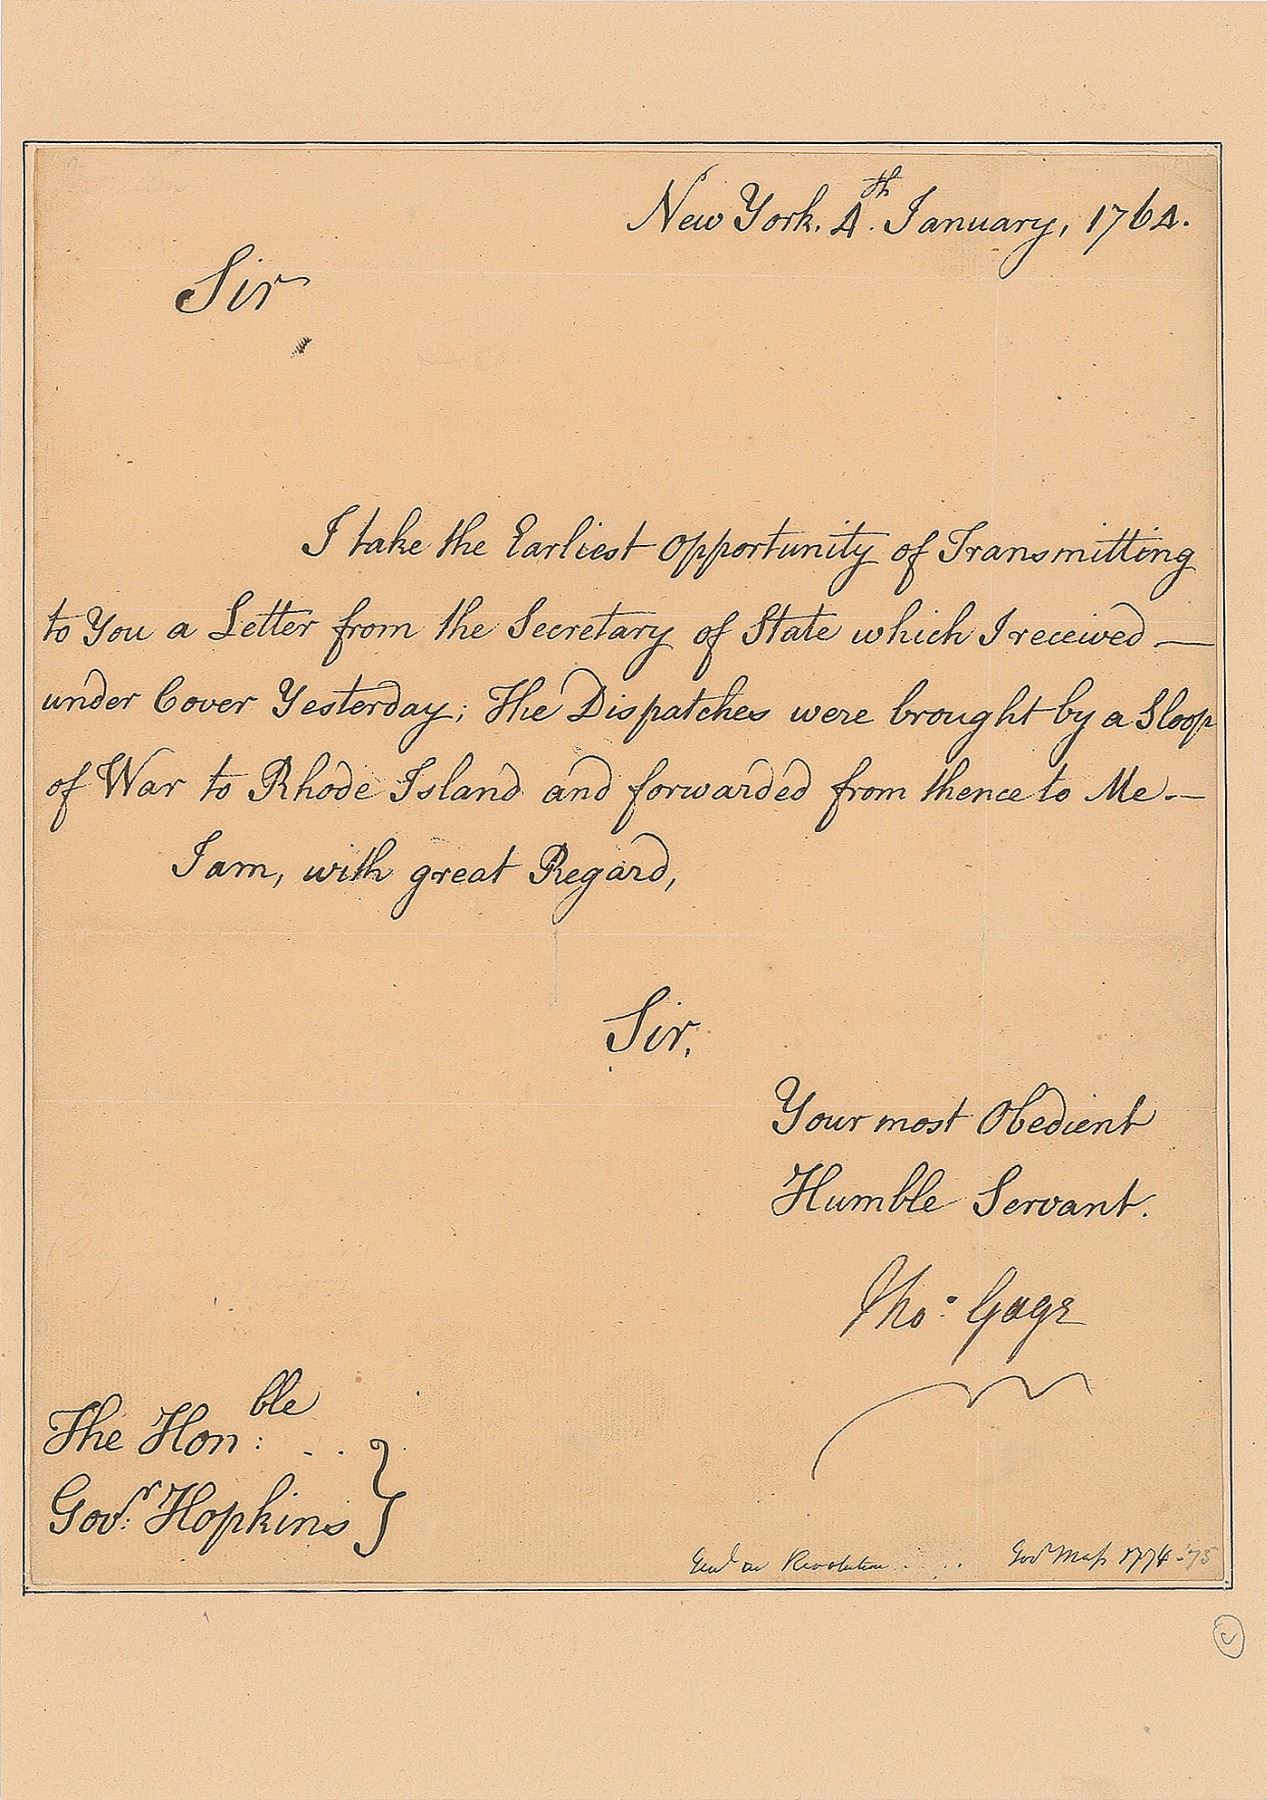 New York. 4th. January, 1764.
Sir
I take the Earliest Opportunity of Transmitting
to You a Letter from the Secretary of State which I received —
under Cover Yesterday; The Dispatches were brought by a Sloop
of War to Rhode Island and forwarded from thence to Me. —
I am, with great Regard,
Sir,
Your most Obedient
Humble Servant.
Tho: Gage
The Hon:ble . .
Govr: Hopkins }
Revolution . . . . Govr Mass 1774-'75